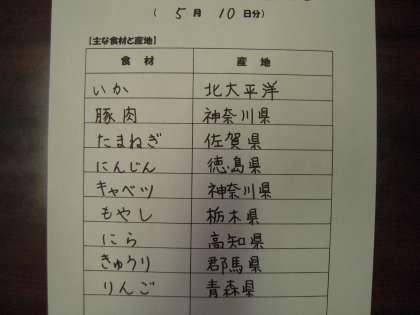 ( 5 月 10 日分)
【主な食材と産地】
食 材 産 地
いか 北大平洋
豚肉 神奈川県
たまねぎ 佐賀県
にんじん 徳島県
キャベツ 神奈川県
もやし 栃木県
にら 高知県
きゅうり 郡馬県
りんご 青森県